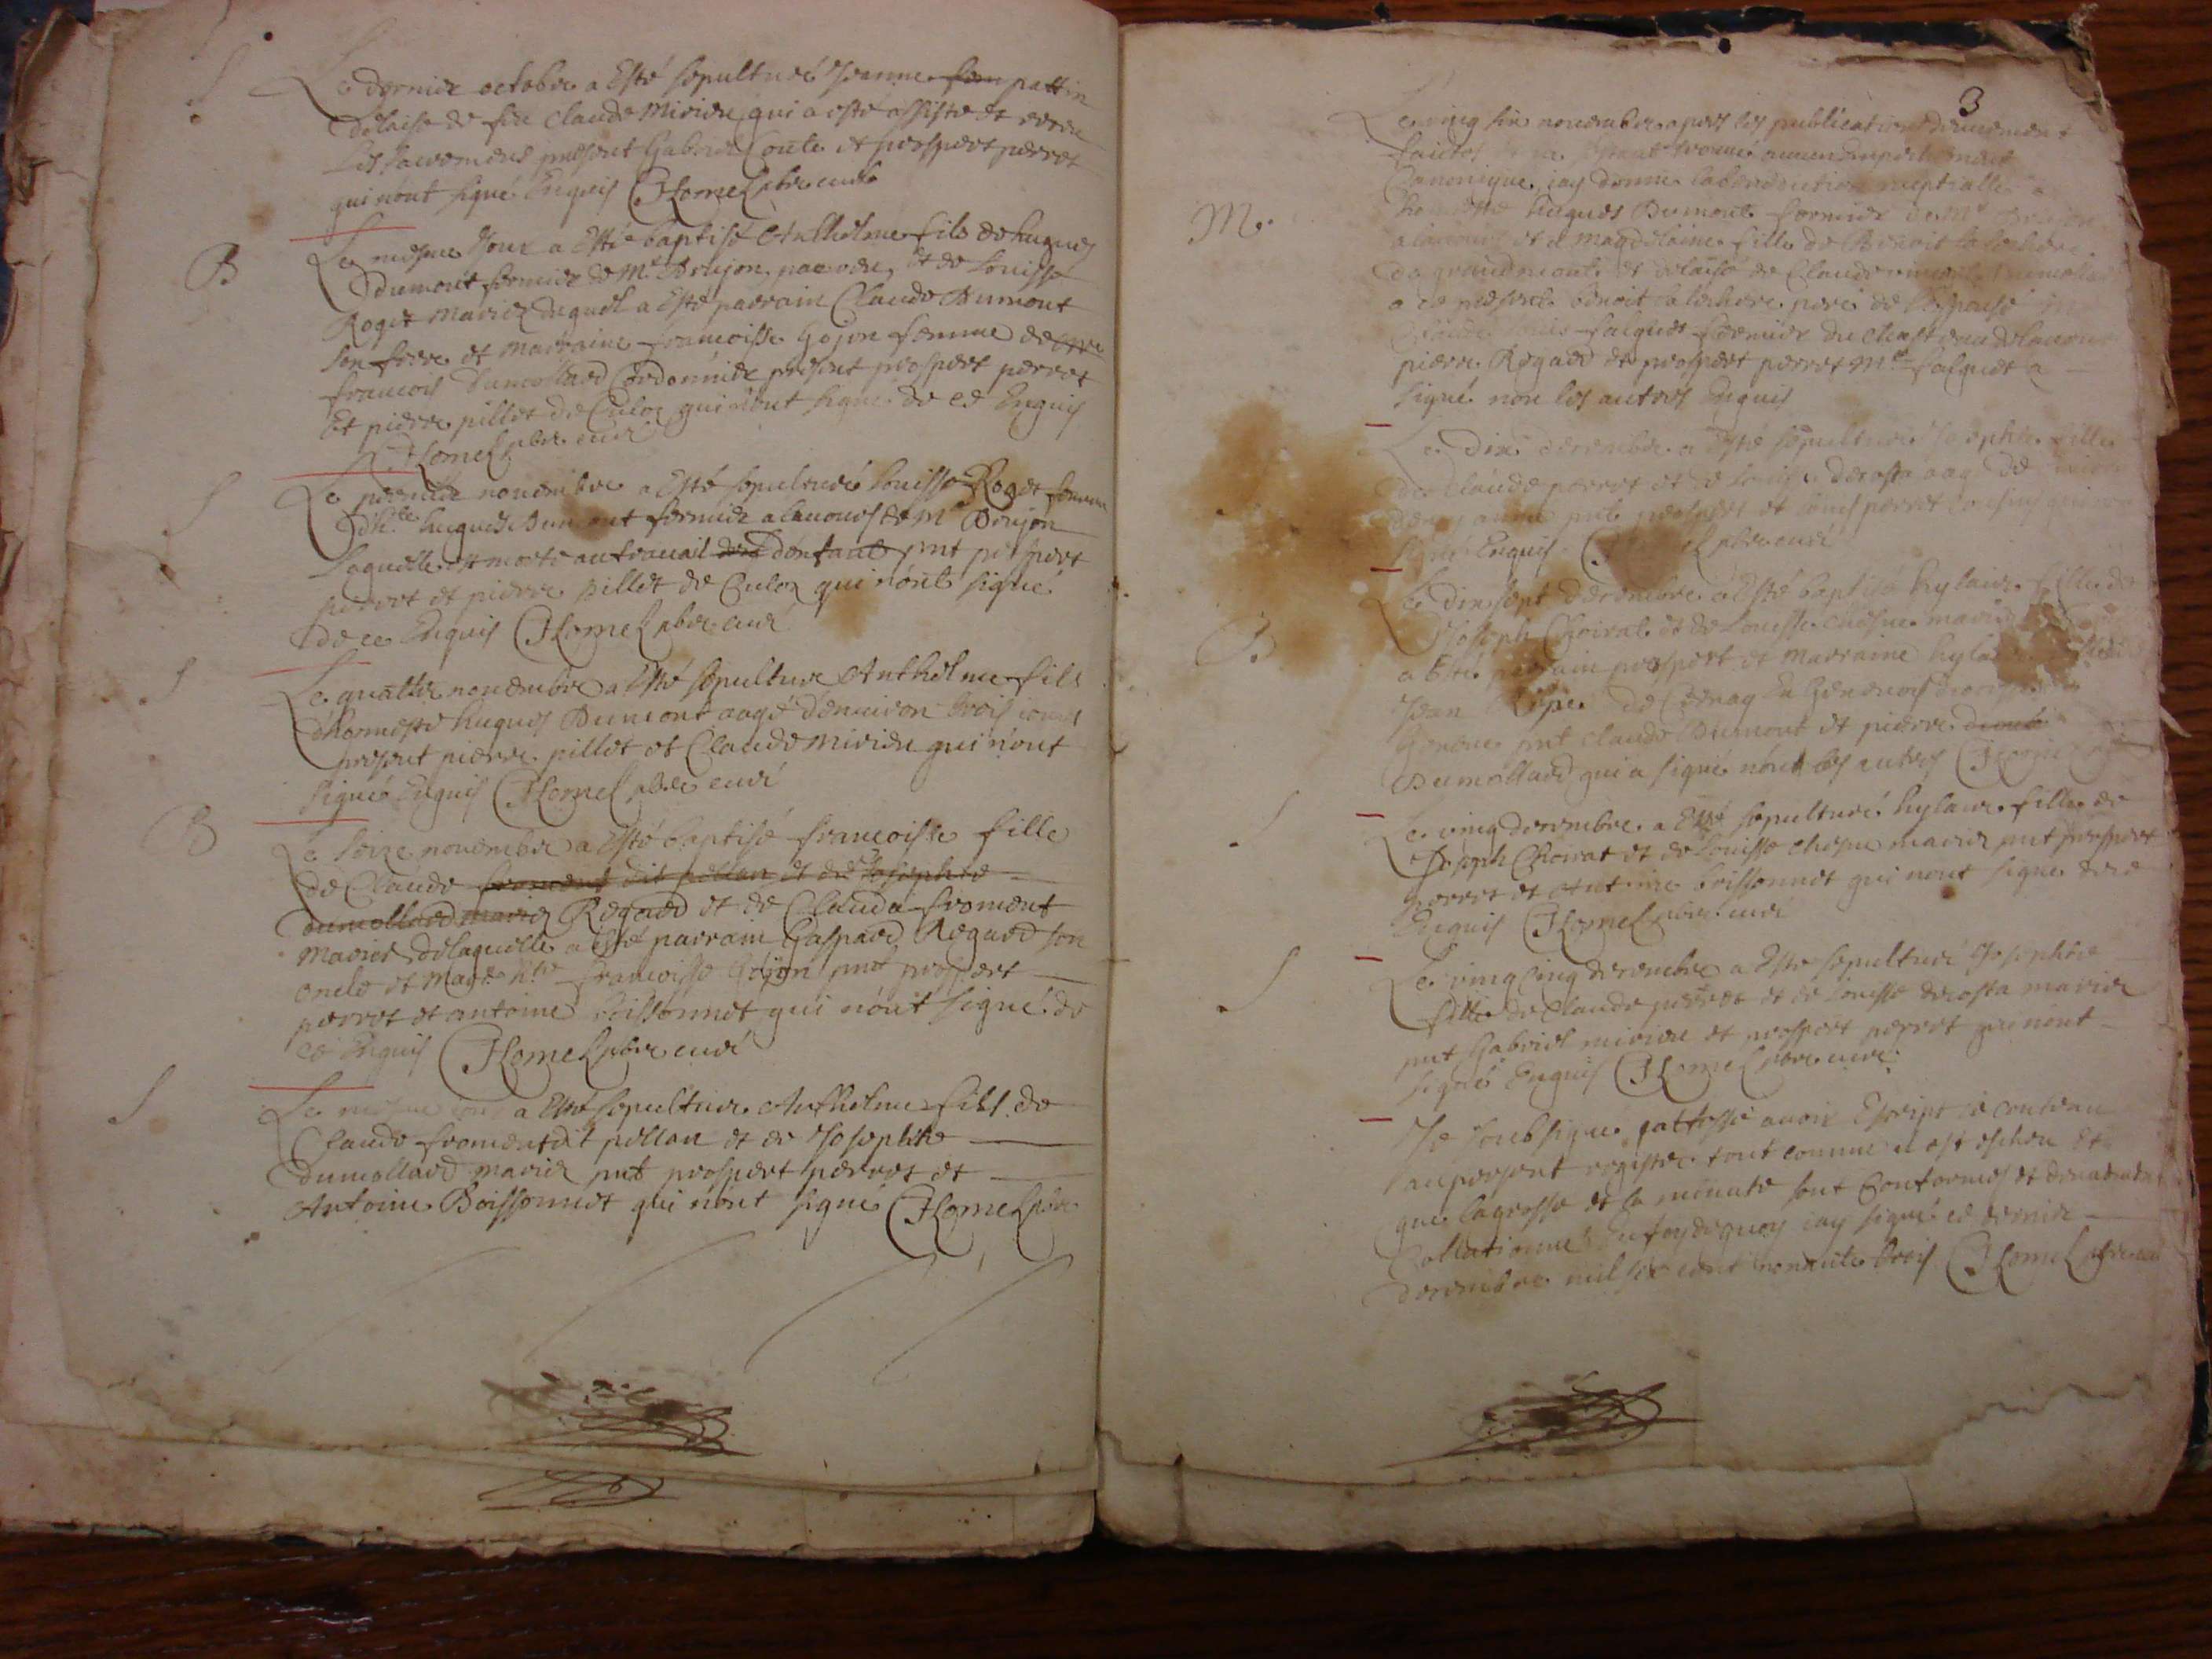 S
Le dernier octobre a Esté sepulturé Jeanne fem pattin
delaise de feu Claude Miviere qui a esté assiste et receu
les Sacremens present Gabriel Conte et prospert perret
qui nont signé Enquis CHomel pbre curé
B
Le mesme Jour a Esté baptisé Anthelme fils de hugues
dumont fermier de Mr Drujon, et de Louisse
Roget Mariez duquel a Esté parrain Claude Dumont
son frere et Marraine francoisse Gojon femme de
francois Dumollard Cordonnier present prospert perret
Et pierre pillet de Culoz qui nont signé de ce Enquis
CHomel pbre curé
S
Le premier novembre a Esté sepulturé Louisse Roget femme
d'h.te hugues Dumont fermier a lauours de Mr Drujon
Laquelle est morte au travail denfant pnt prospert
perret et pierre pillet de Culoz qui nont signé
de ce Enquis CHomel pbre curé
S
Le quattre novembre a Esté sepulture Anthelme fils
d'honneste hugues Dumont aagé denuiron trois jours
present pierre pillet et Claude Miviere qui n'ont
signé Enquis CHomel pbre curé
B
Le seize novembre a Esté baptisé francoisse fille
de Claude froment dit pellan et de Josephte
dumollard mariez Regard et de Clauda froment
Mariez de laquelle a esté parrain Gaspard Regard son
oncle et Mar.e h.te francoisse Gojon pnt prospert
perret et antoine Boissonnet qui nont signé de
ce Enquis CHomel pbre curé
S
Le mesme jour a Esté sepulture Anthelme fils de
Claude froment dit pellan et de Josephte
dumollard mariez pnt prospert perret et
Antoine Boissonnet qui nont signé CHomel pbre
3
M.
Le ving six novembre apres les publications deuement
faictes et ne estant trouué aucun Empechement
Canonique jay donné la benediction nuptialle a
honneste hugues Dumont fermier de Mr
a lauours et a Magdelaine fille de Benoit
de grandmont et delaisé de Claude
a ce present benoit pere de l'Espouse
falquet fermier du Chasteau de lauours
pierre Regard et prospert perret Mre falquet a
signé non les autres Enquis
Le dix decembre a Esté sepulturé Josephte fille
de Claude perret et de Louise decosta aag de
pnt prospert et Louis perret
signé Enquis CHomel pbre curé
B
Le dixsept decembre a Esté baptisé hylaire fille de
Joseph Choirat et de Louisse chesne mariez
a Esté parrain prospert et Marraine
Jean
Geneve pnt claude Dumont et pierre
Dumollard qui a signé nont les autres
S
Le ving decembre a Esté sepulturé hylaire fille de
Joseph Choirat et de Louisse chesne mariez pnt prospert
perret et Antoine boissonnet qui nont signé de ce
Enquis CHomel pbre curé
S
Le ving cinq decembre a Esté sepulturé Josephte
fille de Claude perret et de Louisse decosta mariez
pnt Gabriel miviere et prospert perret qui nont
signé Enquis CHomel pbre curé
Je soubsigné atteste auoir Escript le contenu
au present registre tout comme il est escheu et
que la grosse et la minute sont Conformes et deuement
Collationné En foy dequoy jay signé ce dernier
decembre mil six cent nonante trois CHomel pbre curé